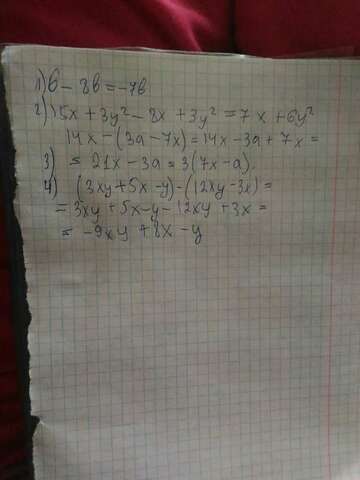 1) b - 8b = -7b
2) 15x + 3y² - 8x + 3y² = 7x + 6y²
14x - (3a - 7x) = 14x - 3a + 7x =
3) = 21x - 3a = 3(7x - a)
4) (3xy + 5x - y) - (12xy - 3x) =
= 3xy + 5x - y - 12xy + 3x =
= -9xy + 8x - y